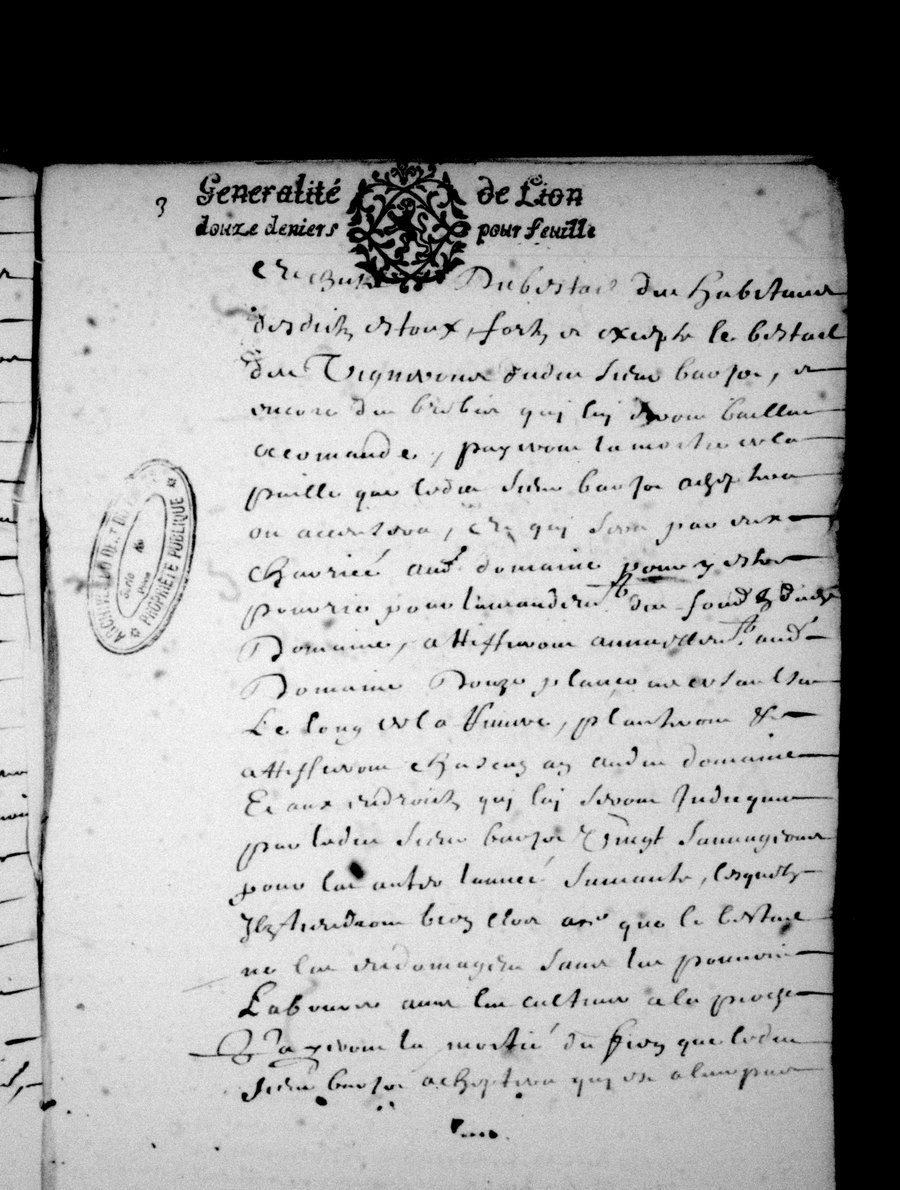 3 Generalité de Lion
douze deniers pour feuille
Du bestail des habitans
desdictz estoux, fortz et exepte le bestail
des Vignerons dudit Sieur bauson, et
encore des brebis quj luj seront baillees
acomande, payeront la moitie de la
paille que ledit Sieur bauson acheptera
ou acceptera, et quj sera par eux
charriée aud. domaine pour y estre
pourrie pour l'amandem.t des fonds dudit
Domaine, attifferont annuellem.t aud.
Domaine Douze plançons de saulsin
Le long de la riviere, planteront &
attifferont chascung an audit domaine
Et aux endroictz quj luj seront Indiqués
par ledit Sieur bauson Vingt Sauvageons
pour les anter l'année Suivante, lesquelz
Ilz tiendront bien clos affin que le bestail
ne les endomagent sans les pouvoir
Labourer avec les cultures a la pioche
Payeront la moitié du foin que ledit
Sieur bauson acheptera quj est a leur part
ARCHIVES PROPRIÉTÉ PUBLIQUE